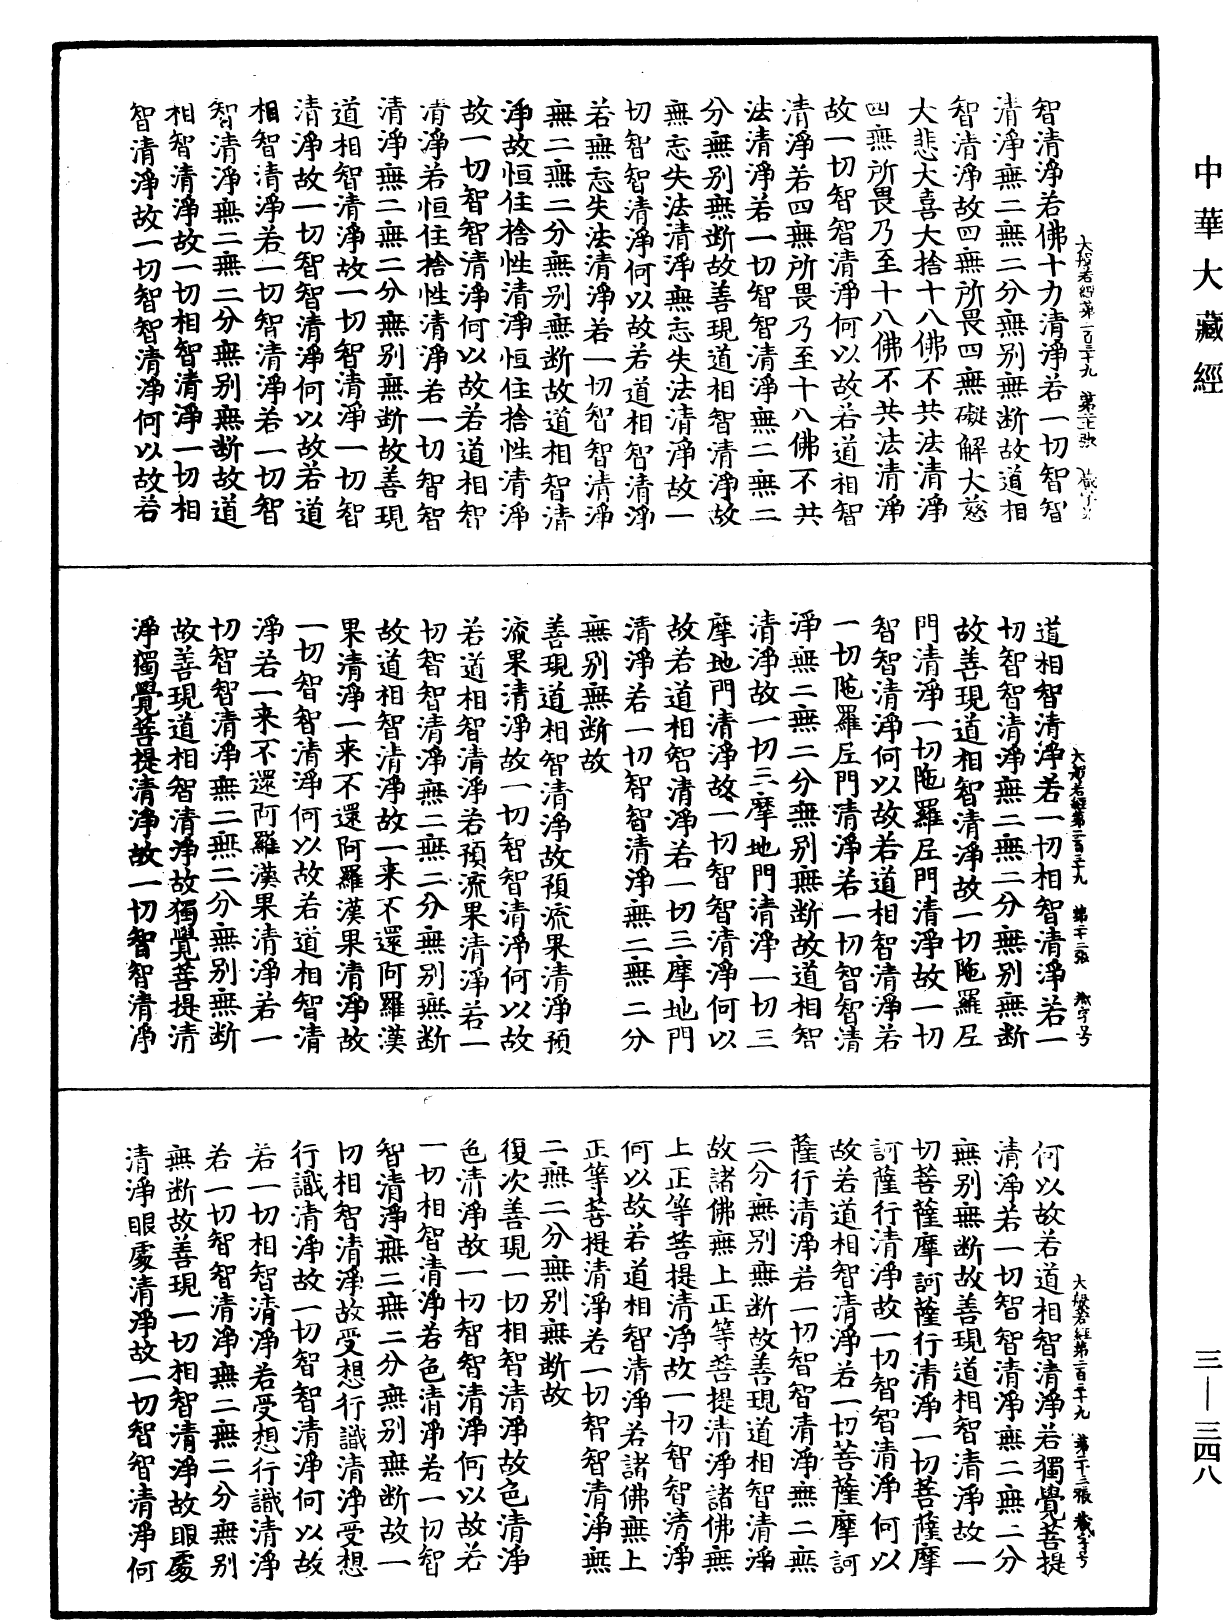 中華大藏經
智清淨若佛十力清淨若一切智智
清淨無二無二分無別無斷故道相
智清淨故四無所畏四無礙解大慈
大悲大喜大捨十八佛不共法清淨
四無所畏乃至十八佛不共法清淨
故一切智智清淨何以故若道相智
清淨若四無所畏乃至十八佛不共
法清淨若一切智智清淨無二無二
分無別無斷故善現道相智清淨故
無忘失法清淨無忘失法清淨故一
切智智清淨何以故若道相智清淨
若無忘失法清淨若一切智智清淨
無二無二分無別無斷故道相智清
淨故恒住捨性清淨恒住捨性清淨
故一切智智清淨何以故若道相智
清淨若恒住捨性清淨若一切智智
清淨無二無二分無別無斷故善現
道相智清淨故一切智清淨一切智
清淨故一切智智清淨何以故若道
相智清淨若一切智清淨若一切智
智清淨無二無二分無別無斷故道
相智清淨故一切相智清淨一切相
智清淨故一切智智清淨何以故若
大般若經第二百三十九
道相智清淨若一切相智清淨若一
切智智清淨無二無二分無別無斷
故善現道相智清淨故一切陁羅尼
門清淨一切陁羅尼門清淨故一切
智智清淨何以故若道相智清淨若
一切陁羅尼門清淨若一切智智清
淨無二無二分無別無斷故道相智
清淨故一切三摩地門清淨一切三
摩地門清淨故一切智智清淨何以
故若道相智清淨若一切三摩地門
清淨若一切智智清淨無二無二分
無別無斷故
善現道相智清淨故預流果清淨預
流果清淨故一切智智清淨何以故
若道相智清淨若預流果清淨若一
切智智清淨無二無二分無別無斷
故道相智清淨故一来不還阿羅漢
果清淨一来不還阿羅漢果清淨故
一切智智清淨何以故若道相智清
淨若一来不還阿羅漢果清淨若一
切智智清淨無二無二分無別無斷
故善現道相智清淨故獨覺菩提清
淨獨覺菩提清淨故一切智智清淨
大般若經第二百三十九　第二十二張
何以故若道相智清淨若獨覺菩提
清淨若一切智智清淨無二無二分
無別無斷故善現道相智清淨故一
切菩薩摩訶薩行清淨一切菩薩摩
訶薩行清淨故一切智智清淨何以
故若道相智清淨若一切菩薩摩訶
薩行清淨若一切智智清淨無二無
二分無別無斷故善現道相智清淨
故諸佛無上正等菩提清淨諸佛無
上正等菩提清淨故一切智智清淨
何以故若道相智清淨若諸佛無上
正等菩提清淨若一切智智清淨無
二無二分無別無斷故
復次善現一切相智清淨故色清淨
色清淨故一切智智清淨何以故若
一切相智清淨若色清淨若一切智
智清淨無二無二分無別無斷故一
切相智清淨故受想行識清淨受想
行識清淨故一切智智清淨何以故
若一切相智清淨若受想行識清淨
若一切智智清淨無二無二分無別
無斷故善現一切相智清淨故眼處
清淨眼處清淨故一切智智清淨何
大般若經第二百三十九　第二十三張
三—三四八